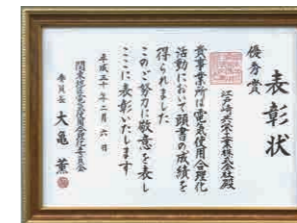 表彰状
優秀賞
江戸崎共栄工業株式会社殿
貴事業所は電気使用合理化
活動において頭書の成績を
得られました
このご努力に敬意を表し
ここに表彰いたします
平成三十年二月六日
関東地区電気使用合理化委員会
委員長 大亀 薫